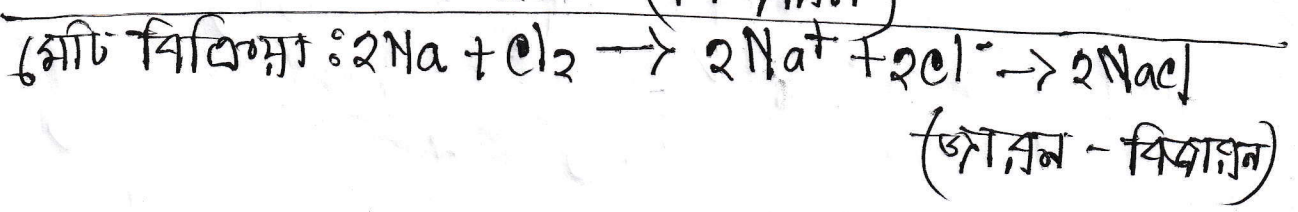 মোট বিক্রিয়া : 2Na + Cl₂ → 2Na⁺ + 2Cl⁻ → 2NaCl
(জারন - বিজারন)